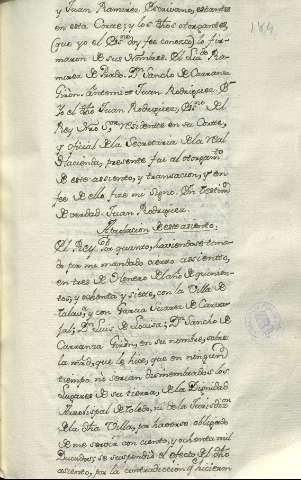 y Juan Ramirez Escrivano estantes
en esta Corte; y los dhos otorgantes,
(que yo el Ssno doy fee conozco) lo fir-
maron de sus Nombres. El Licdo Ra-
mirez de Prado. Dn Sancho de Carranza
Giron. Antemi: Juan Rodriguez. E
Yo el dho Juan Rodriguez, Ssno del
Rey Nro Sr residente en su Corte,
y oficial de la Secretaria de la Real
Hacienda, presente fui al otorgamto
de este assiento, y transacion, y en
fee de ello fize mi signo. En testimo
de verdad. Juan Rodriguez.
Aprobacion de este asiento.
El Rey. Por quanto, haviendose toma-
do por mi mandado cierto assiento,
en tres de Henero del año de quinien-
tos, y ochenta y siete, con la Villa de
Talavera, y con Garcia Suarez de Carva-
jal; Dn Luis de Loaisa; Dn Sancho de
Carranza Giron, en su nombre, sobre
la mrd, que le hice, que en ningun
tiempo ni serian desmembrados los
Lugares de su tierra, de la Dignidad
Arzobispal de Toledo, ni de la Jurisdon
de la dha Villa, por haverse obligado
de me servir con ciento, y ochenta mil
Ducados; se suspendió el efecto del dho
asiento, por la contradiccion q hicieron
184